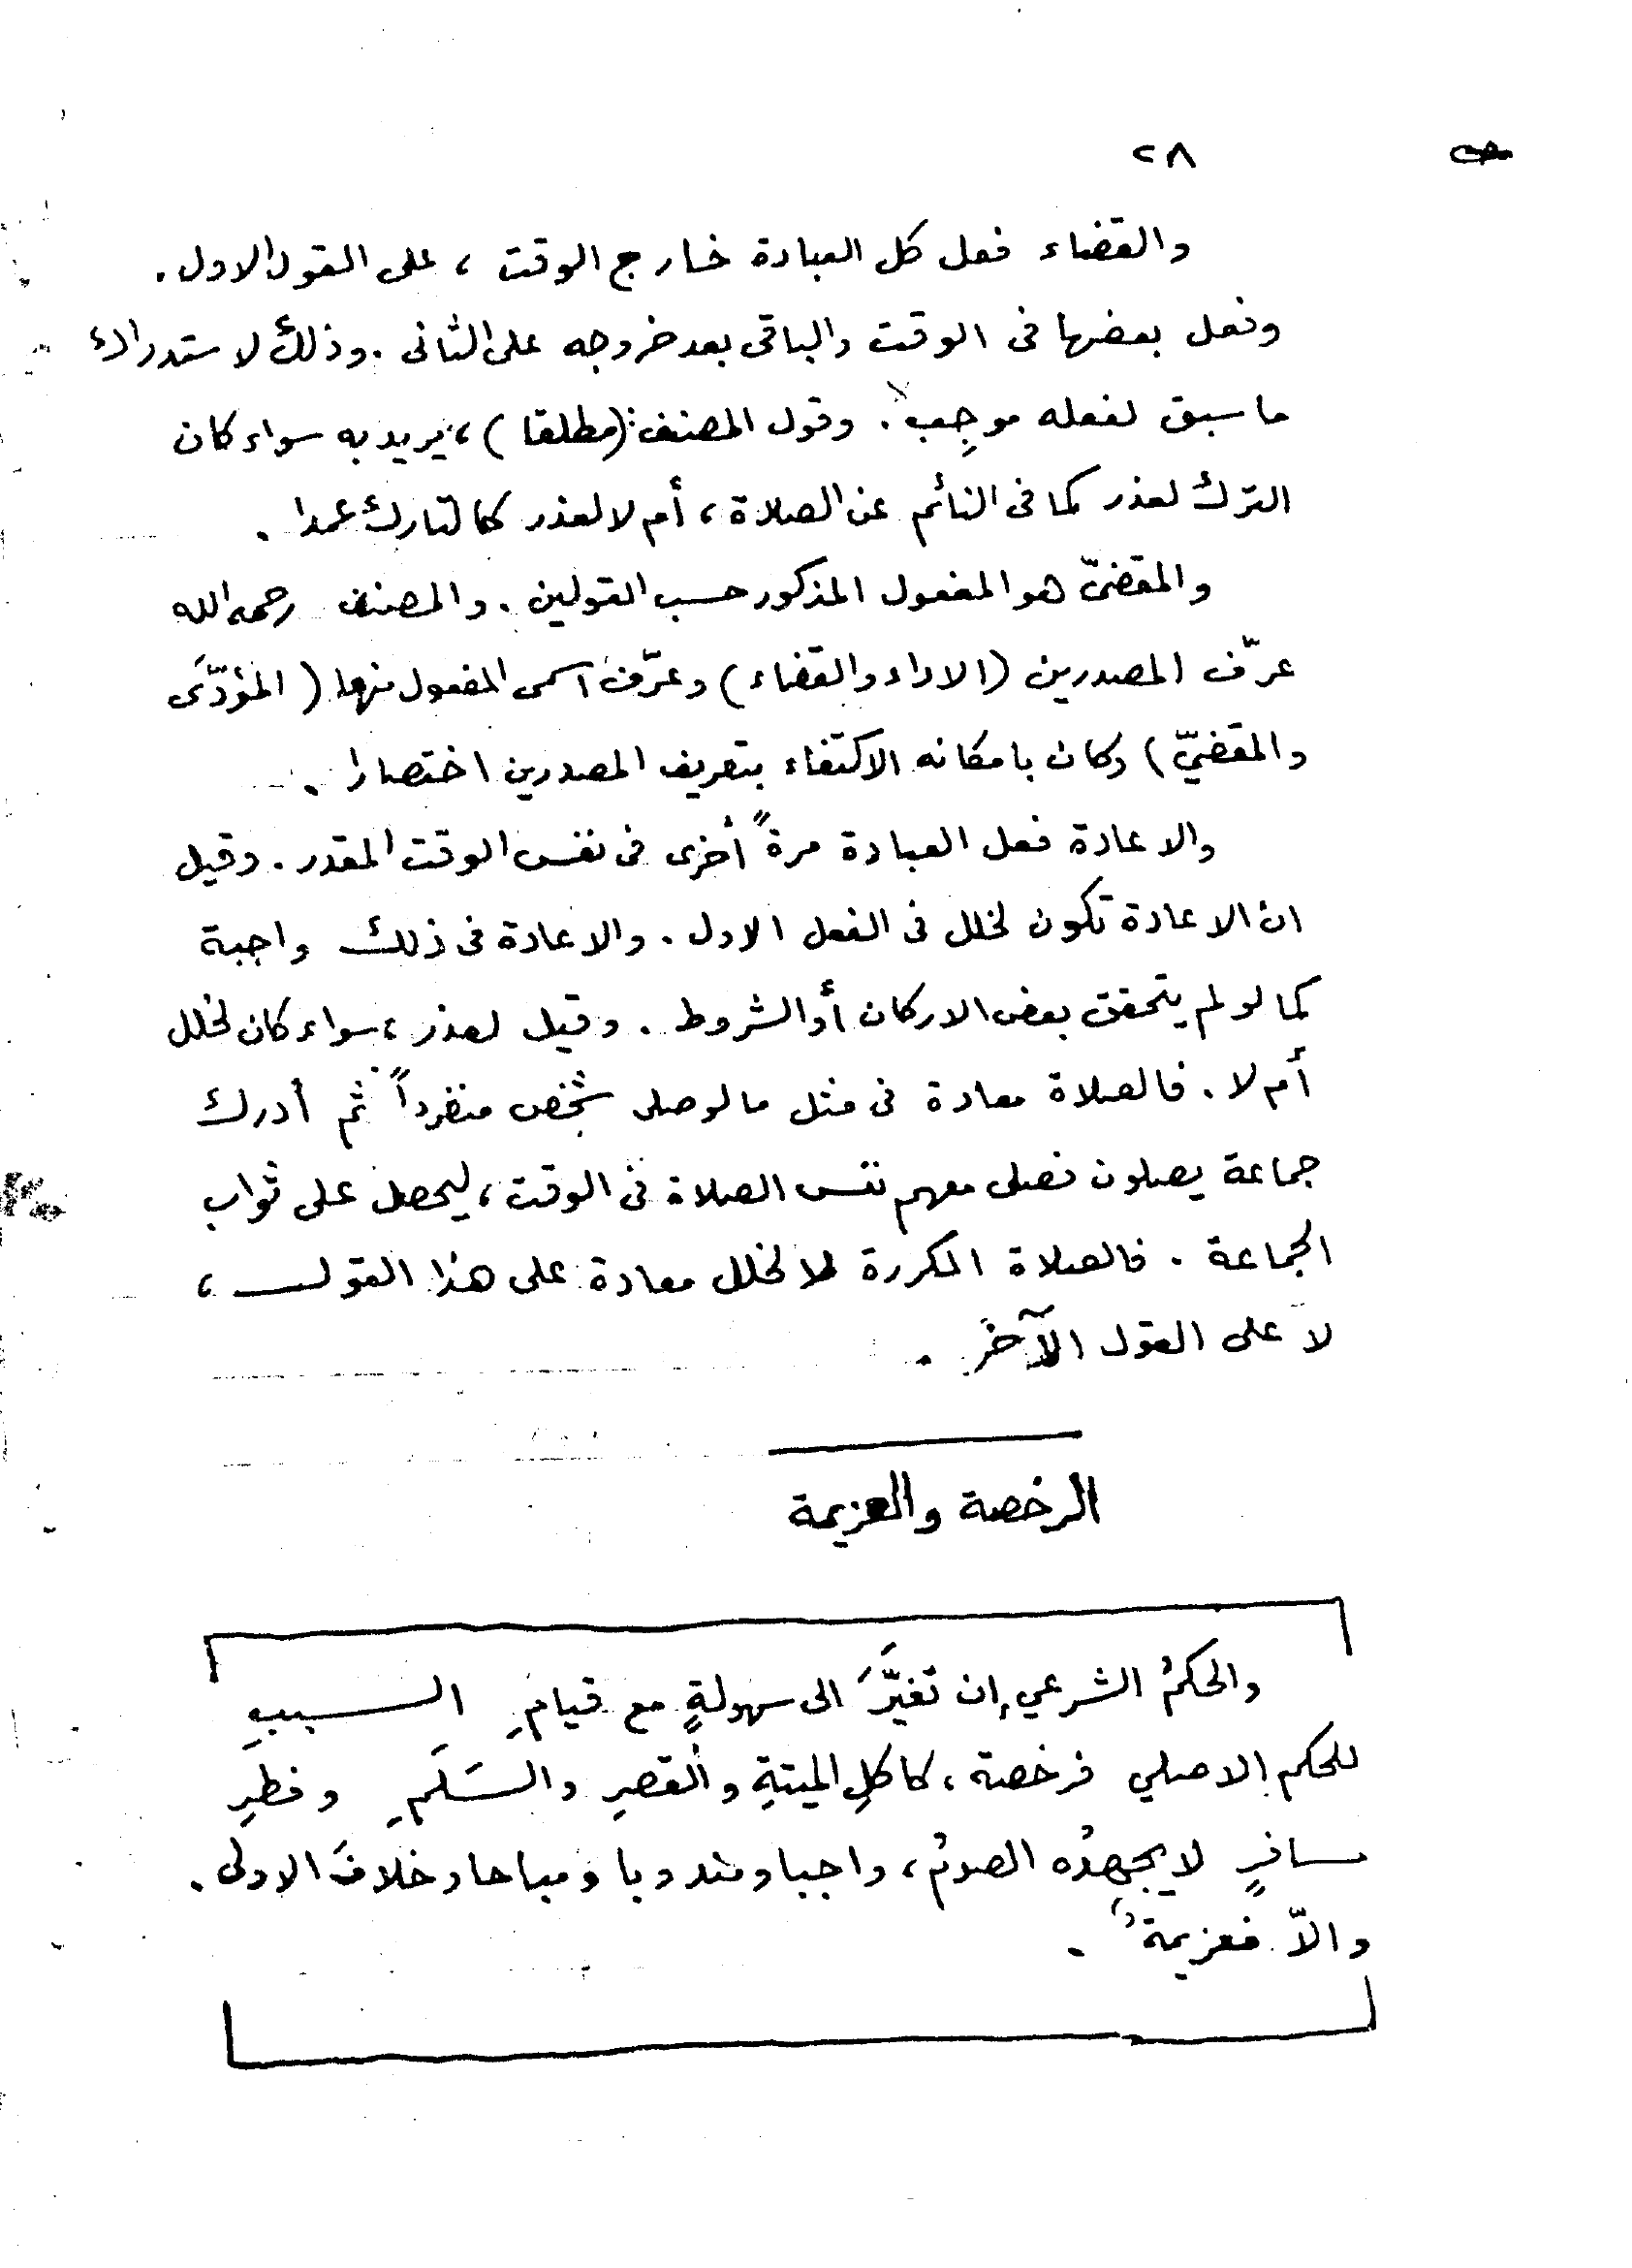 ٢٨
والقضاء فعل كل العبادة خارج الوقت ، على القول الاول .
وفعل بعضها فى الوقت والباقى بعد خروجه على الثانى . وذلك لاستدراك
ما سبق لفعله موجِب . وقول المصنف : (مطلقا) ، يريد به سواء كان
الترك لعذر كما فى النائم عن الصلاة ، أم لا لعذر كالتارك عمدا .
والمقضىّ هو المفعول المذكور حسب القولين . والمصنف رحمه الله
عرّف المصدرين (الاداء والقضاء) وعرّف اسمى المفعول منهما (المؤدَّى
والمقضيّ) وكان بامكانه الاكتفاء بتعريف المصدرين اختصارا .
والاعادة فعل العبادة مرةً أخرى فى نفس الوقت المقدر . وقيل
ان الاعادة تكون لخلل فى الفعل الاول . والاعادة فى ذلك واجبة
كما لو لم يتحقق بعض الاركان أو الشروط . وقيل لعذر ، سواء كان لخلل
أم لا . فالصلاة معادة فى مثل ما لو صلى شخص منفرداً ثم أدرك
جماعة يصلون فصلى معهم نفس الصلاة فى الوقت ، ليحصل على ثواب
الجماعة . فالصلاة المكررة لا لخلل معادة على هذا القول ،
لا على القول الآخر .
الرخصة والعزيمة
والحكمُ الشرعي إن تغيَّرَ الى سهولةٍ مع قيامِ السببِ
للحكم الاصلي فرخصة ، كاكلِ الميتةِ والقصرِ والسَلَمِ وفطرِ
مسافرٍ لا يجهدُه الصومُ ، واجبا ومندوبا ومباحا وخلافَ الاولى .
والاّ فعزيمةٌ .